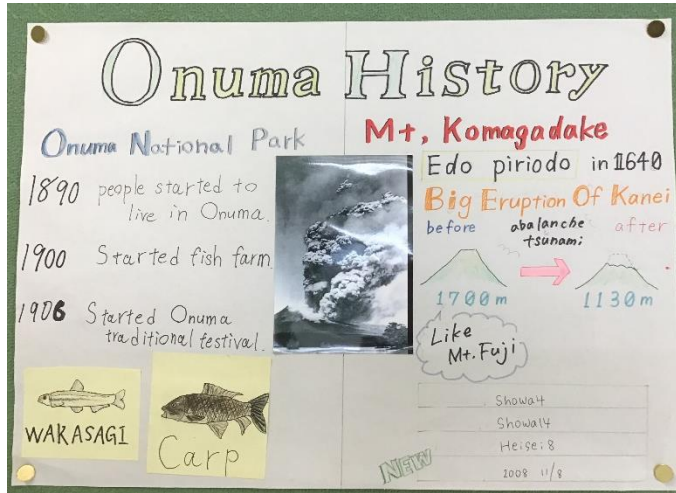 Onuma History
Onuma National Park
1890 people started to
live in Onuma.
1900 Started fish farm.
1906 Started Onuma
traditional festival.
WAKASAGI
Carp
Mt, Komagadake
Edo piriodo in 1640
Big Eruption Of Kanei
before
abalanche
tsunami
after
1700m
1130m
Like
Mt. Fuji
Showa4
Showa14
Heisei8
NEW
2008 11/8